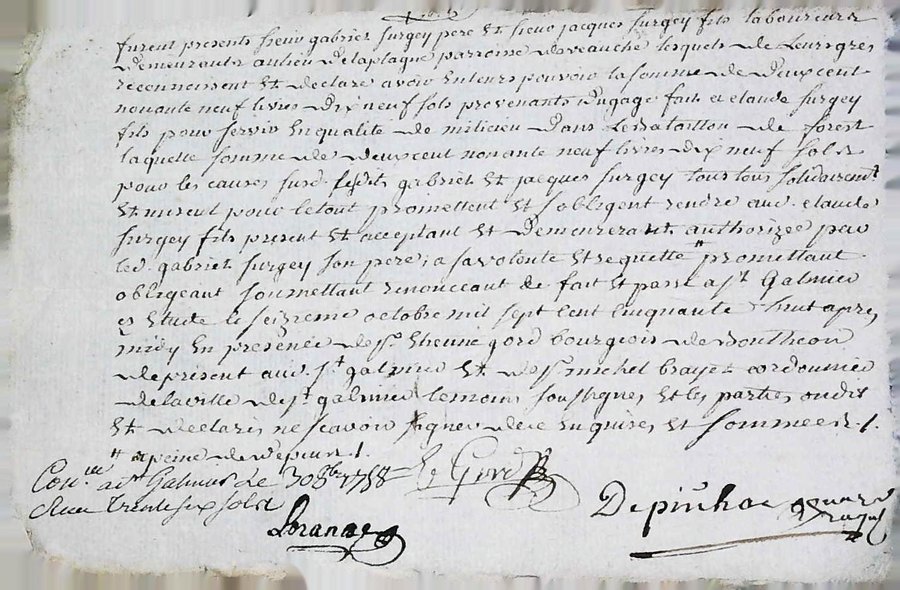 furent presents sieur gabriel surgey pere et sieur jacques surgey fils laboureurs
demeurants au lieu delaplagne parroisse deveauche lesquels de leurs gres
reconnoissent et declare avoir en leurs pouvoir la somme de deux cent
nonante neuf livres dix neuf sols provenants dugage fait a claude surgey
fils pour servir en qualité de milicien dans le bataillon de forest
laquelle somme de deux cent nonante neuf livres dix neuf sols
pour les causes susd. lesdits gabriel et jacques surgey tous deux solidairemt
et un seul pour le tout promettent et sobligent rendre aud. claude
surgey fils present et acceptant et demeurera authorizee par
led. gabriel surgey son pere, a sa volonte et requette # promettant
obligeant soumettant renonceant de fait et passé a st Galmier
es etude le seizieme octobre mil sept cent cinquante huit apres
midy en presence de sr. etienne gord bourgeois de boutheon
de present aud. st galmier et de sr. michel brayet cordonnier
de la ville de st galmier temoins soussignes et les parties ont dit
et declaré ne scavoir signer de ce enquises et sommees ./.
# a peine de depens ./.
Con.lé a st Galmier le 30 8bre 1758
Reçu trente six sols
Loranae
Le Gord
Depinhac